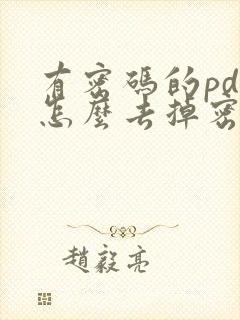 有密碼的pd
怎麼去掉密
趙毅亮